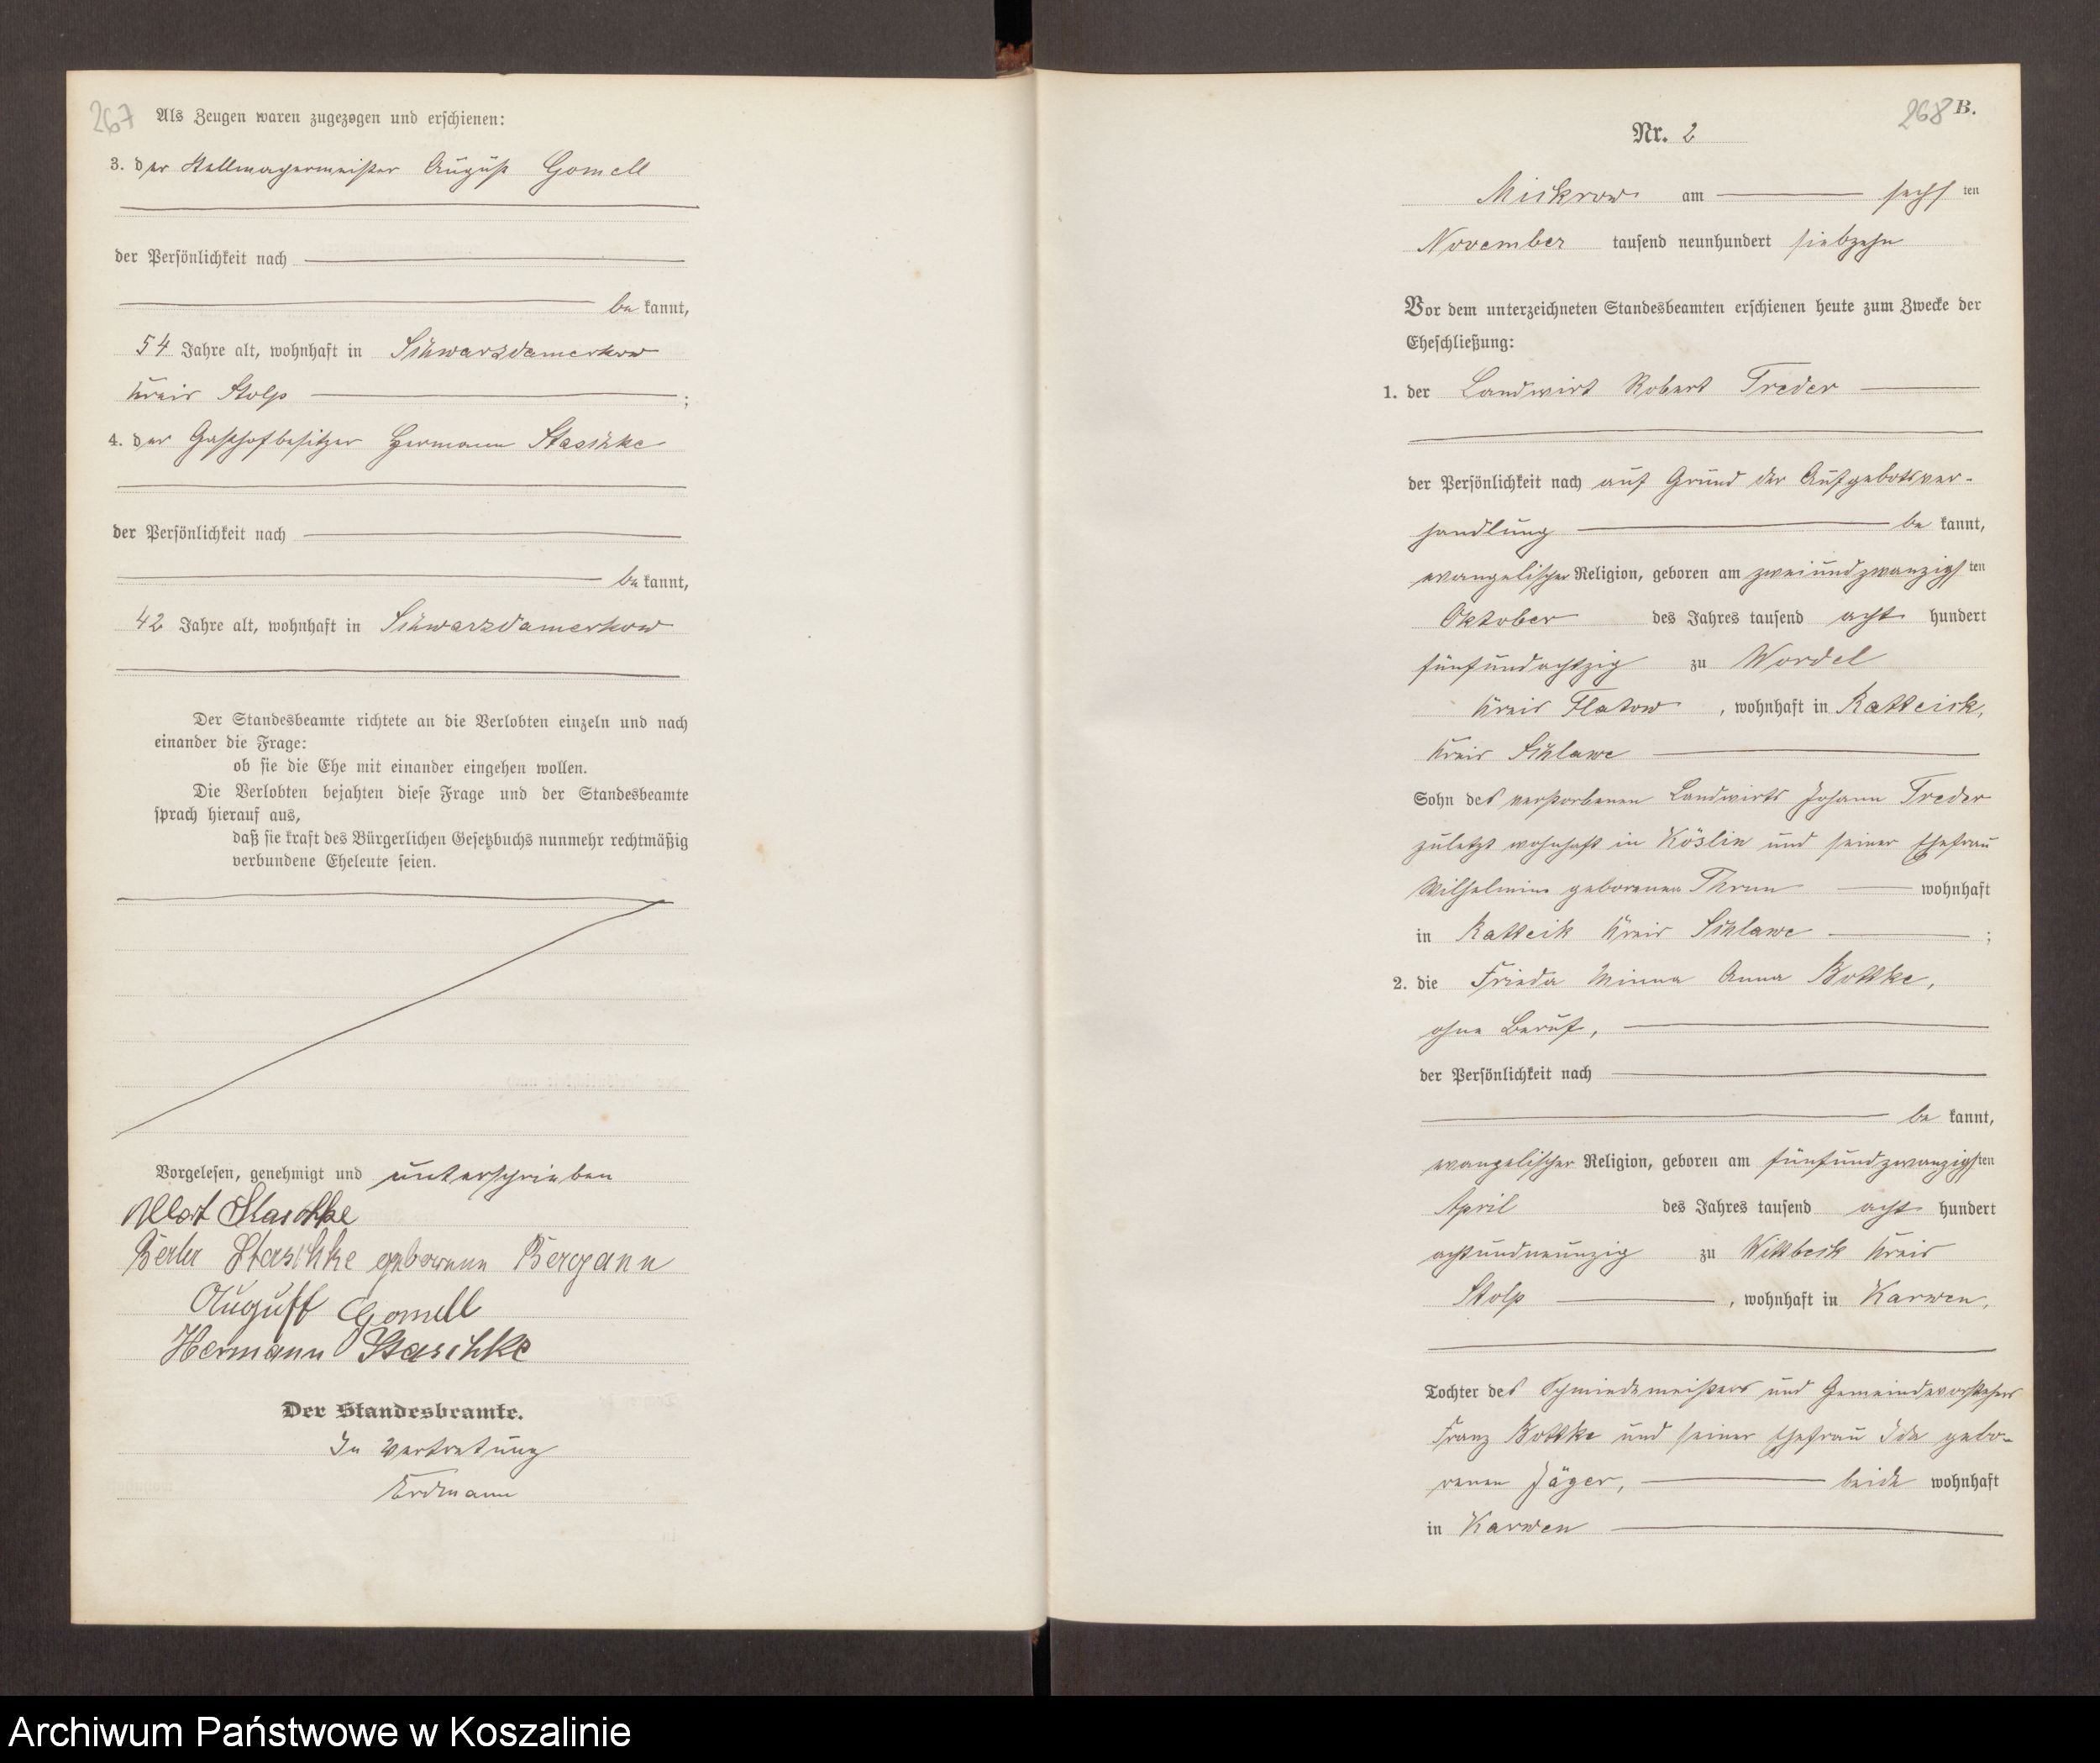 267
Als Zeugen waren zugezogen und erschienen:
3. der Stellmachermeister August Gomell
der Persönlichkeit nach
be kannt,
54 Jahre alt, wohnhaft in Schwarzdamerkow
Kreis Stolp ;
4. der Gasthofbesitzer Hermann Staschke
der Persönlichkeit nach
be kannt,
42 Jahre alt, wohnhaft in Schwarzdamerkow
Der Standesbeamte richtete an die Verlobten einzeln und nach
einander die Frage:
ob sie die Ehe mit einander eingehen wollen.
Die Verlobten bejahten diese Frage und der Standesbeamte
sprach hierauf aus,
daß sie kraft des Bürgerlichen Gesetzbuchs nunmehr rechtmäßig
verbundene Eheleute seien.
Vorgelesen, genehmigt und unterschrieben
Staschke
Staschke geborene Bergann
August Gomell
Hermann Staschke
Der Standesbeamte.
In Vertretung
Erdmann
268 B.
Nr. 2
Mickrow am sechs ten
November tausend neunhundert siebzehn
Vor dem unterzeichneten Standesbeamten erschienen heute zum Zwecke der
Eheschließung:
1. der Landwirt Robert Treder
der Persönlichkeit nach auf Grund der Aufgebotsver-
handlung be kannt,
evangelischer Religion, geboren am zweiundzwanzigs ten
Oktober des Jahres tausend acht hundert
fünfundachtzig zu Wordel
Kreis Flatow , wohnhaft in Ratteick,
Kreis Schlawe
Sohn des verstorbenen Landwirts Johann Treder
zuletzt wohnhaft in Köslin und seiner Ehefrau
Wilhelmine geborenen Thrun wohnhaft
in Ratteik Kreis Schlawe ;
2. die Frieda Minna Anna Bottke,
ohne Beruf,
der Persönlichkeit nach
be kannt,
evangelischer Religion, geboren am fünfundzwanzigsten
April des Jahres tausend acht hundert
achtundneunzig zu Wittbeck Kreis
Stolp , wohnhaft in Karwen,
Tochter des Schmiedemeisters und Gemeindevorstehers
Franz Bottke und seiner Ehefrau Ida gebo-
renen Jäger, beide wohnhaft
in Karwen
Archiwum Państwowe w Koszalinie